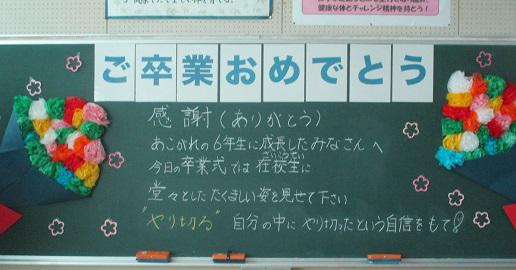 健康な体とチャレンジ精神を持とう！
ご卒業おめでとう
感謝（ありがとう）
あこがれの6年生に成長したみなさんへ
今日の卒業式では在校生に
ざいこうせい
堂々としたたくましい姿を見せて下さい
"やり切る" 自分の中にやり切ったという自信をもて！